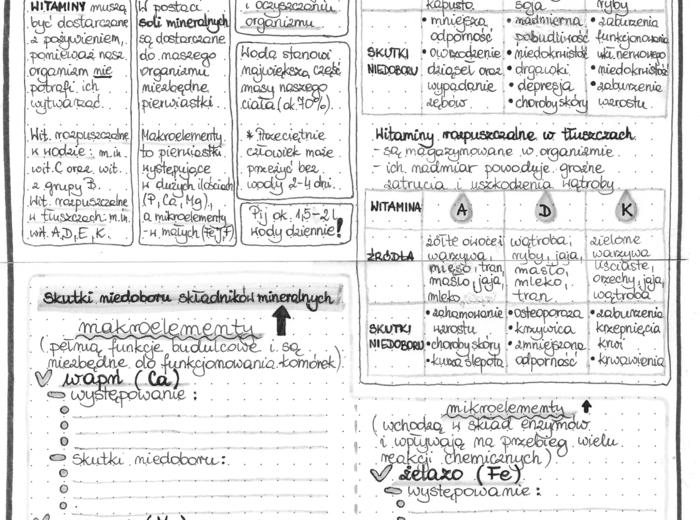 WITAMINY muszą
być dostarczane
z pożywieniem,
ponieważ nasz
organizm nie
potrafi ich
wytwarzać.
Wit. rozpuszczalne
w wodzie: m.in.
wit. C oraz wit.
z grupy B.
Wit. rozpuszczalne
w tłuszczach: m.in.
wit. A, D, E, K.
W postaci
soli mineralnych
są dostarczane
do naszego
organizmu
niezbędne
pierwiastki.
Makroelementy
to pierwiastki
występujące
w dużych ilościach
(P, Ca, Mg),
a mikroelementy
- w małych (Fe, J, F)
i oczyszczaniu
organizmu.
Woda stanowi
największą część
masy naszego
ciała (ok. 70%).
* Przeciętnie
człowiek może
przeżyć bez
wody 2-4 dni.
Pij ok. 1,5-2 L
wody dziennie!
kapusta
soja
ryby
SKUTKI
NIEDOBORU
• mniejsza
odporność
• owrzodzenie
dziąseł oraz
wypadanie
zębów.
• nadmierna
pobudliwość
• niedokrwistość
• drgawki
• depresja
• choroby skóry
• zaburzenia
funkcjonowania
ukł. nerwowego
• niedokrwistość
• zaburzenie
wzrostu.
Witaminy rozpuszczalne w tłuszczach
- są magazynowane w organizmie
- ich nadmiar powoduje groźne
zatrucia i uszkodzenia wątroby
WITAMINA A D K
ŹRÓDŁA
żółte owoce i
warzywa,
mięso, tran,
masło, jaja,
mleko,
wątroba,
ryby, jaja,
masło,
mleko,
tran
zielone
warzywa
liściaste,
orzechy, jaja,
wątroba
SKUTKI
NIEDOBORU
• zahamowanie
wzrostu
• choroby skóry
• kurza ślepota
• osteoporoza
• krzywica
• zmniejszona
odporność
• zaburzenia
krzepnięcia
krwi
• krwawienia
Skutki niedoboru składników mineralnych
makroelementy
(pełnią funkcje budulcowe i są
niezbędne do funkcjonowania komórek)
wapń (Ca)
występowanie:
Skutki niedoboru:
mikroelementy
(wchodzą w skład enzymów
i wpływają na przebieg wielu
reakcji chemicznych)
żelazo (Fe)
występowanie: